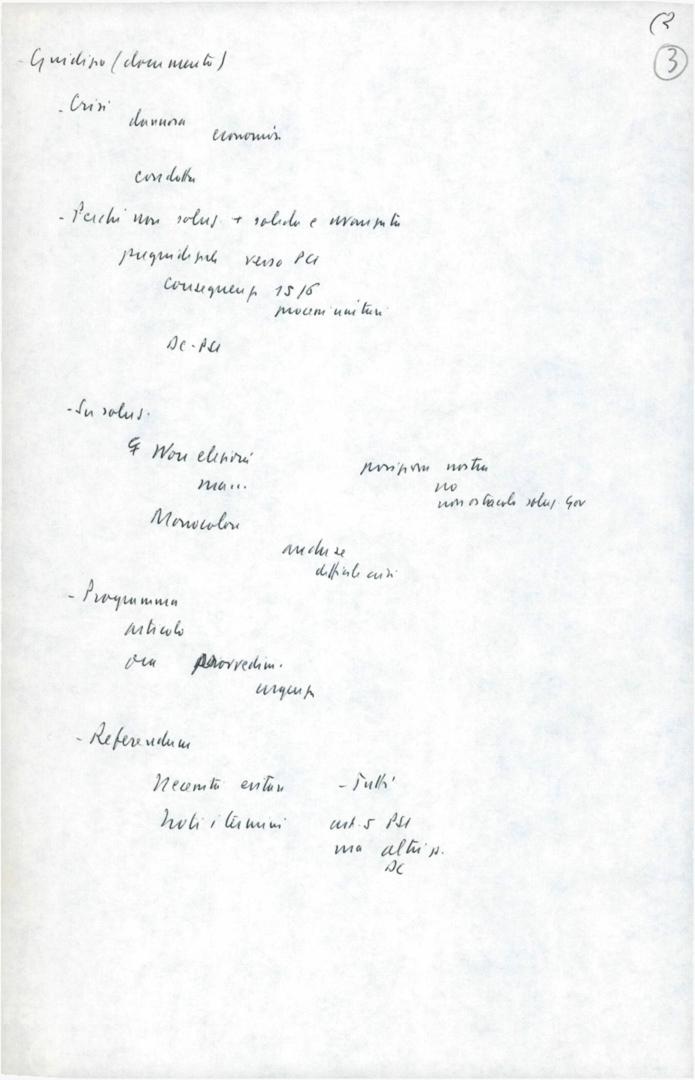 3
- Giudizio (documento)
- Crisi
dannosa
economia
condotta
- Perché non soluz. + solida e avanzata
pregiudiziale verso PCI
conseguenz. 15/6
processi unitari
DC-PSI
- Su soluz.
Non elezioni
ma...
posizione nostra
no
non ostacolo soluz Gov
Monocolore
anche se
difficile crisi
- Programma
articolo
ora provvedim.
urgenza
- Referendum
Necessità evitare - Tutti
Noti i termini art. 5 PSI
ma altri p.
DC